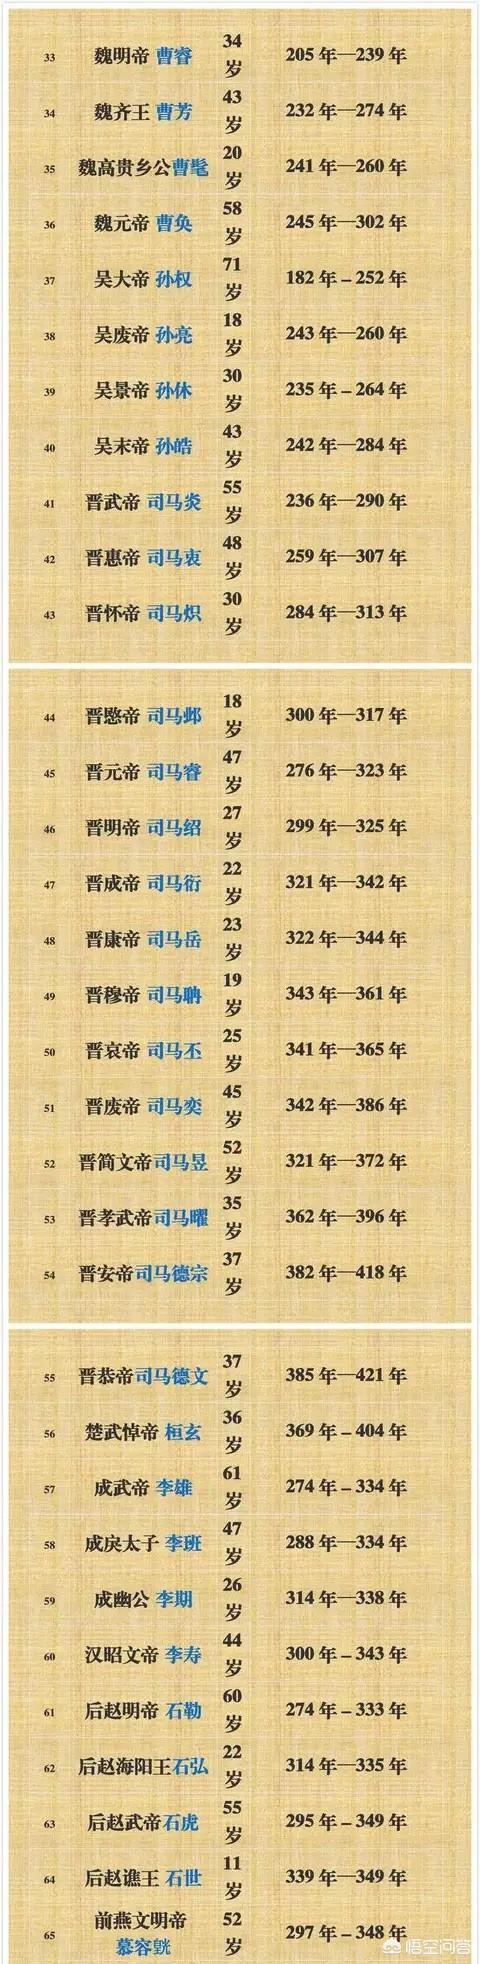 33 魏明帝 曹睿 34岁 205 年—239 年
34 魏齐王 曹芳 43岁 232 年—274 年
35 魏高贵乡公曹髦 20岁 241 年—260 年
36 魏元帝 曹奂 58岁 245 年—302 年
37 吴大帝 孙权 71岁 182 年 – 252 年
38 吴废帝 孙亮 18岁 243 年—260 年
39 吴景帝 孙休 30岁 235 年 – 264 年
40 吴末帝 孙皓 43岁 242 年—284 年
41 晋武帝 司马炎 55岁 236 年—290 年
42 晋惠帝 司马衷 48岁 259 年—307 年
43 晋怀帝 司马炽 30岁 284 年—313 年
44 晋愍帝 司马邺 18岁 300 年—317 年
45 晋元帝 司马睿 47岁 276 年—323 年
46 晋明帝 司马绍 27岁 299 年—325 年
47 晋成帝 司马衍 22岁 321 年—342 年
48 晋康帝 司马岳 23岁 322 年—344 年
49 晋穆帝 司马聃 19岁 343 年—361 年
50 晋哀帝 司马丕 25岁 341 年—365 年
51 晋废帝 司马奕 45岁 342 年—386 年
52 晋简文帝司马昱 52岁 321 年—372 年
53 晋孝武帝司马曜 35岁 362 年—396 年
54 晋安帝司马德宗 37岁 382 年—418 年
55 晋恭帝司马德文 37岁 385 年—421 年
56 楚武悼帝 桓玄 36岁 369 年 – 404 年
57 成武帝 李雄 61岁 274 年 – 334 年
58 成戾太子 李班 47岁 288 年—334 年
59 成幽公 李期 26岁 314 年—338 年
60 汉昭文帝 李寿 44岁 300 年 – 343 年
61 后赵明帝 石勒 60岁 274 年 – 333 年
62 后赵海阳王石弘 22岁 314 年—335 年
63 后赵武帝石虎 55岁 295 年 – 349 年
64 后赵谯王 石世 11岁 339 年—349 年
65 前燕文明帝 慕容皝 52岁 297 年 – 348 年
悟空问答